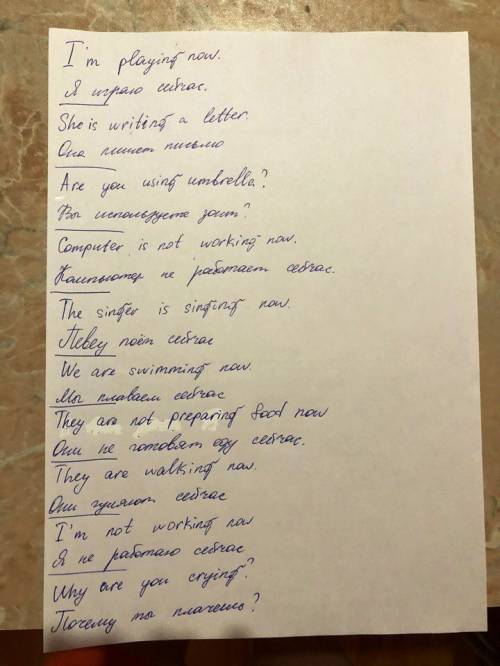 I'm playing now.
Я играю сейчас.
She is writing a letter.
Она пишет письмо
Are you using umbrella?
Вы используете зонт?
Computer is not working now.
Компьютер не работает сейчас.
The singer is singing now.
Певец поёт сейчас
We are swimming now.
Мы плаваем сейчас
They are not preparing food now
Они не готовят еду сейчас.
They are walking now.
Они гуляют сейчас
I'm not working now
Я не работаю сейчас
Why are you crying?
Почему ты плачешь?